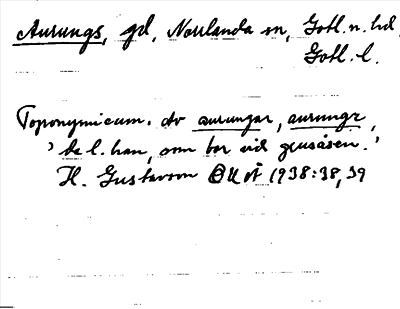 Aurungs, gd, Norrlanda sn, Gotl. n. hd,
Gotl. l.
Toponymicum. Av aurungar, aurungr,
' de l. han, som bor vid grusåsen.'
H. Gustavson 1938:38,39